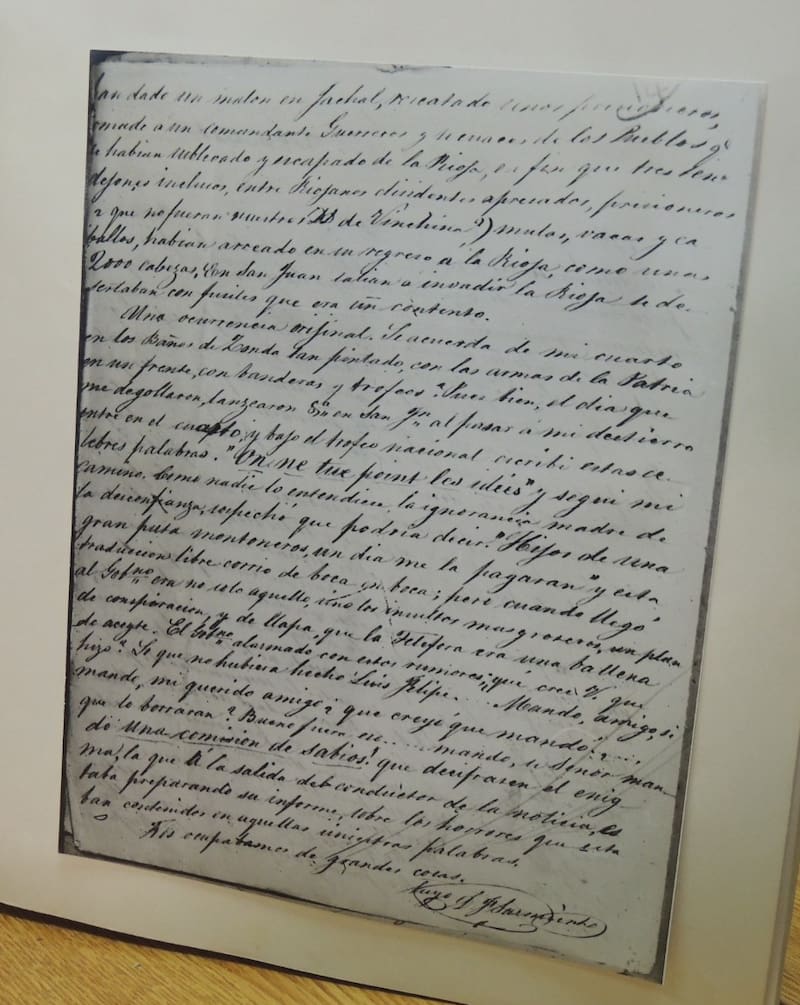 han dado un malon en Jachal, rescatado unos prisioneros,
tomado a un comandante Guerreros y tenaces de los Pueblos q.e
se habian sublevado y escapado de la Rioja, en fin que tres
incluso, entre Riojanos disidentes apresados, prisioneros
¿que no fueran nuestros de Vinchina?) mulas, vacas y ca
ballos, habian arreado en su regreso a la Rioja, como unas
2000 cabezas. En San Juan salian a invadir la Rioja se de
sertaban con fusiles que era un contento.
Una ocurrencia orijinal. Se acuerda de mi cuarto
en los Baños de Zonda tan pintado, con las armas de la Patria
en un frente, con banderas y trofeos? Pues bien, el dia que
me degollaron, lanzearon en San Jn al pasar a mi destierro
entre en el cuarto, y bajo el trofeo nacional escribi estas ce
lebres palabras. "On ne tue point les idées" y segui mi
camino. Como nadie lo entendiese, la ignorancia madre de
la desconfianza, sospechó que podria decir. "Hijos de una
gran puta montoneros, un dia me la pagaran" y esta
traduccion libre corrio de boca en boca; pero cuando llegó
al Gobno era no solo aquello, sino los insultos mas groseros, un plan
de conspiracion, y de Ulapa, que la era una ballena
de aceyte. El Gobno alarmado con estos rumores; qué cree V. que
hizo? Lo que no hubiera hecho Luis Felipe. Mandó, amigo, si
mandó, mi querido amigo? que creyó que mandó?....
que lo borraran? Bueno fuera eso.... mandó, si Señor man
dó una comision de sabios! que decifrasen el enig
ma, la que á la salida del conductor de la noticia, es
taba preparando su informe, sobre los horrores que esta
ban contenidos en aquellas palabras.
Nos ocuparamos de grandes cosas.
Suyo D. F. Sarmiento